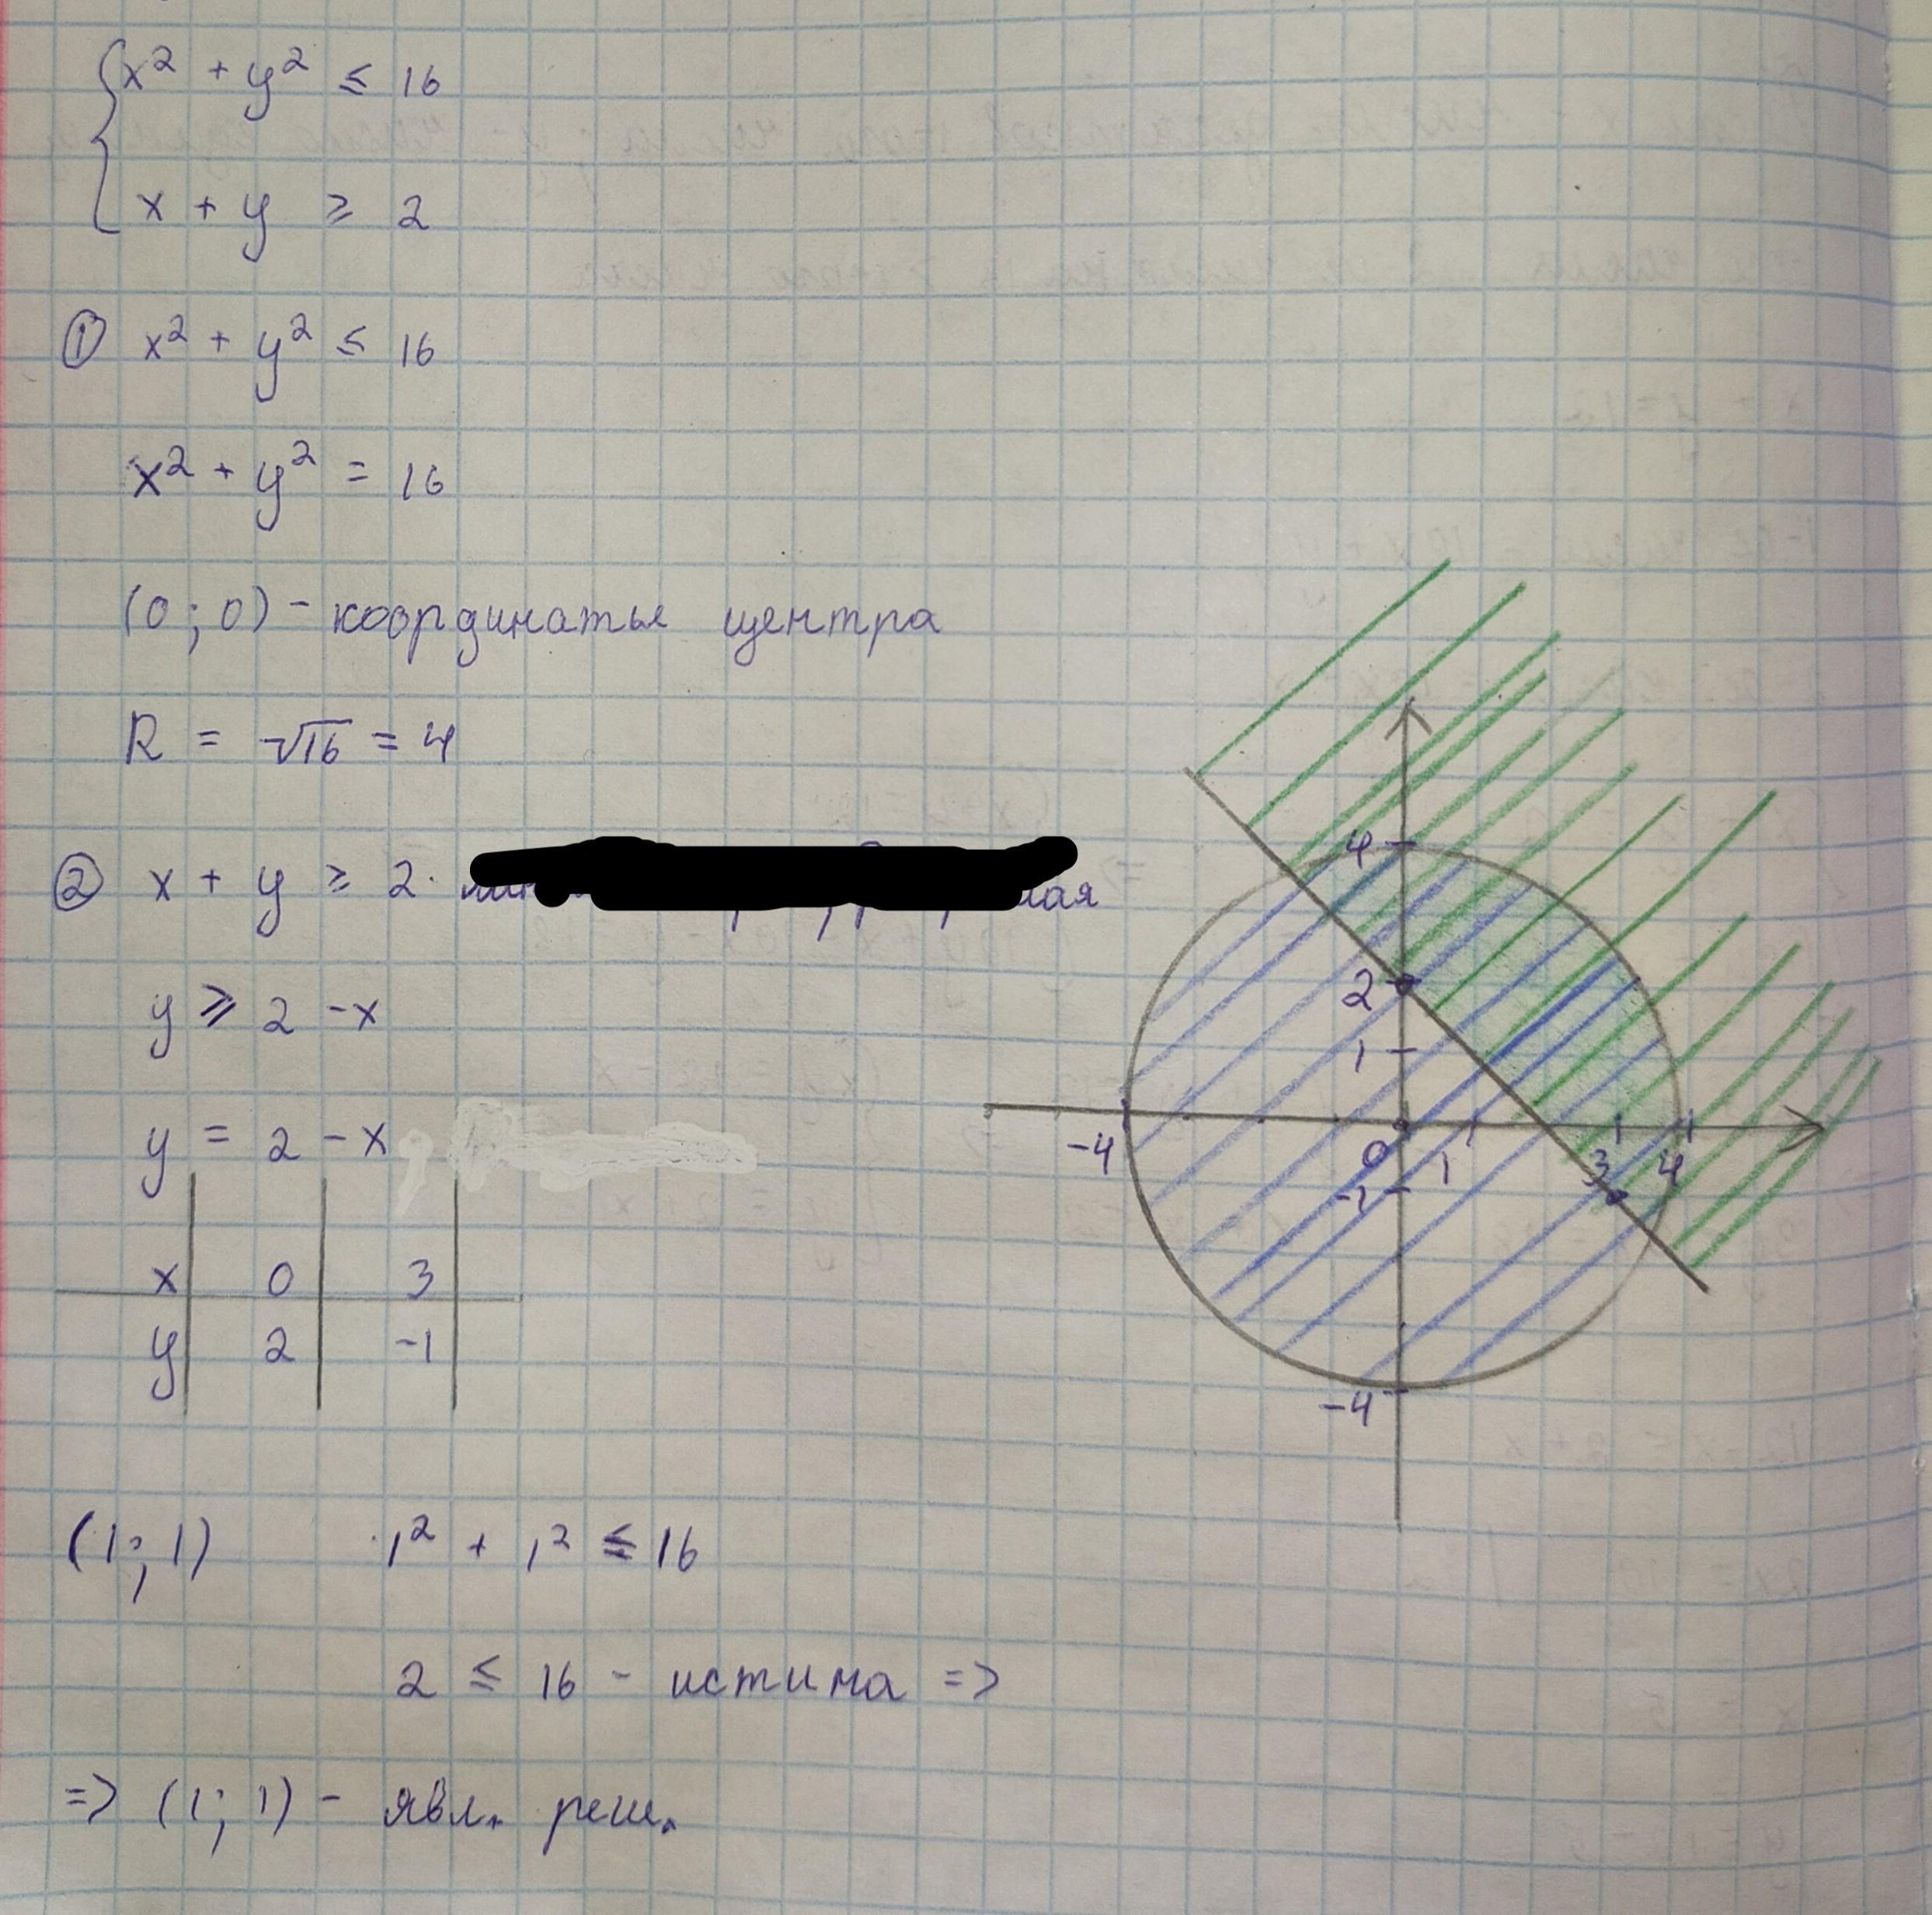 x² + y² ≤ 16
x + y ≥ 2
① x² + y² ≤ 16
x² + y² = 16
(0; 0) - координаты центра
R = √16 = 4
② x + y ≥ 2
y ≥ 2 - x
y = 2 - x
x 0 3
y 2 -1
4
2
1
-4 0 1 3 4
-1
-4
(1; 1) 1² + 1² ≤ 16
2 ≤ 16 - истина =>
=> (1; 1) - явл. реш.